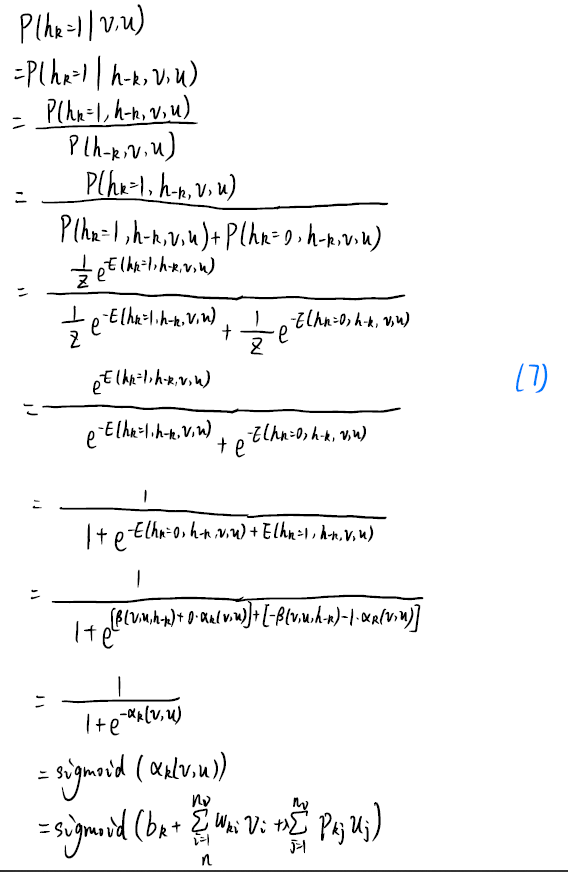 P(hₖ=1 | v,u)
=P(hₖ=1 | h₋ₖ, v, u)
= P(hₖ=1, h₋ₖ, v, u)
P(h₋ₖ, v, u)
= P(hₖ=1, h₋ₖ, v, u)
P(hₖ=1, h₋ₖ, v, u) + P(hₖ=0, h₋ₖ, v, u)
= 1/Z e^{-E(hₖ=1, h₋ₖ, v, u)}
1/Z e^{-E(hₖ=1, h₋ₖ, v, u)} + 1/Z e^{-E(hₖ=0, h₋ₖ, v, u)}
= e^{-E(hₖ=1, h₋ₖ, v, u)} (7)
e^{-E(hₖ=1, h₋ₖ, v, u)} + e^{-E(hₖ=0, h₋ₖ, v, u)}
= 1
1+e^{-E(hₖ=0, h₋ₖ, v, u) + E(hₖ=1, h₋ₖ, v, u)}
= 1
1+e^{[β(v,u,h₋ₖ)+0·αₖ(v,u)]+[-β(v,u,h₋ₖ)-1·αₖ(v,u)]}
= 1
1+e^{-αₖ(v,u)}
= sigmoid (αₖ(v,u))
= sigmoid (bₖ + Σ_{i=1}^{nᵥ} wₖᵢ vᵢ + λΣ_{j=1}^{nᵥ} pₖⱼ uⱼ)
n